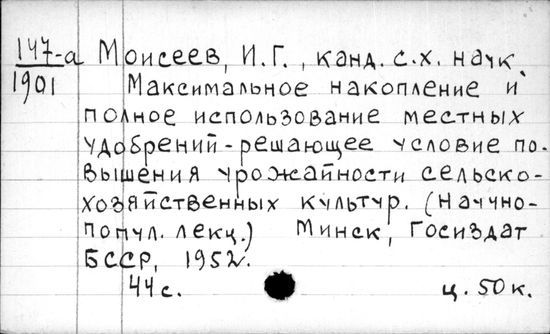 147-а Моисеев, И.Г., канд. с.х. наук
1901 Максимальное накопление и
полное использование местных
удобрений - решающее условие по-
вышения урожайности сельско-
хозяйственных культур. (Научно-
попул. лекц.) Минск, Госиздат
БССР, 1952.
44 с. ц. 50 к.